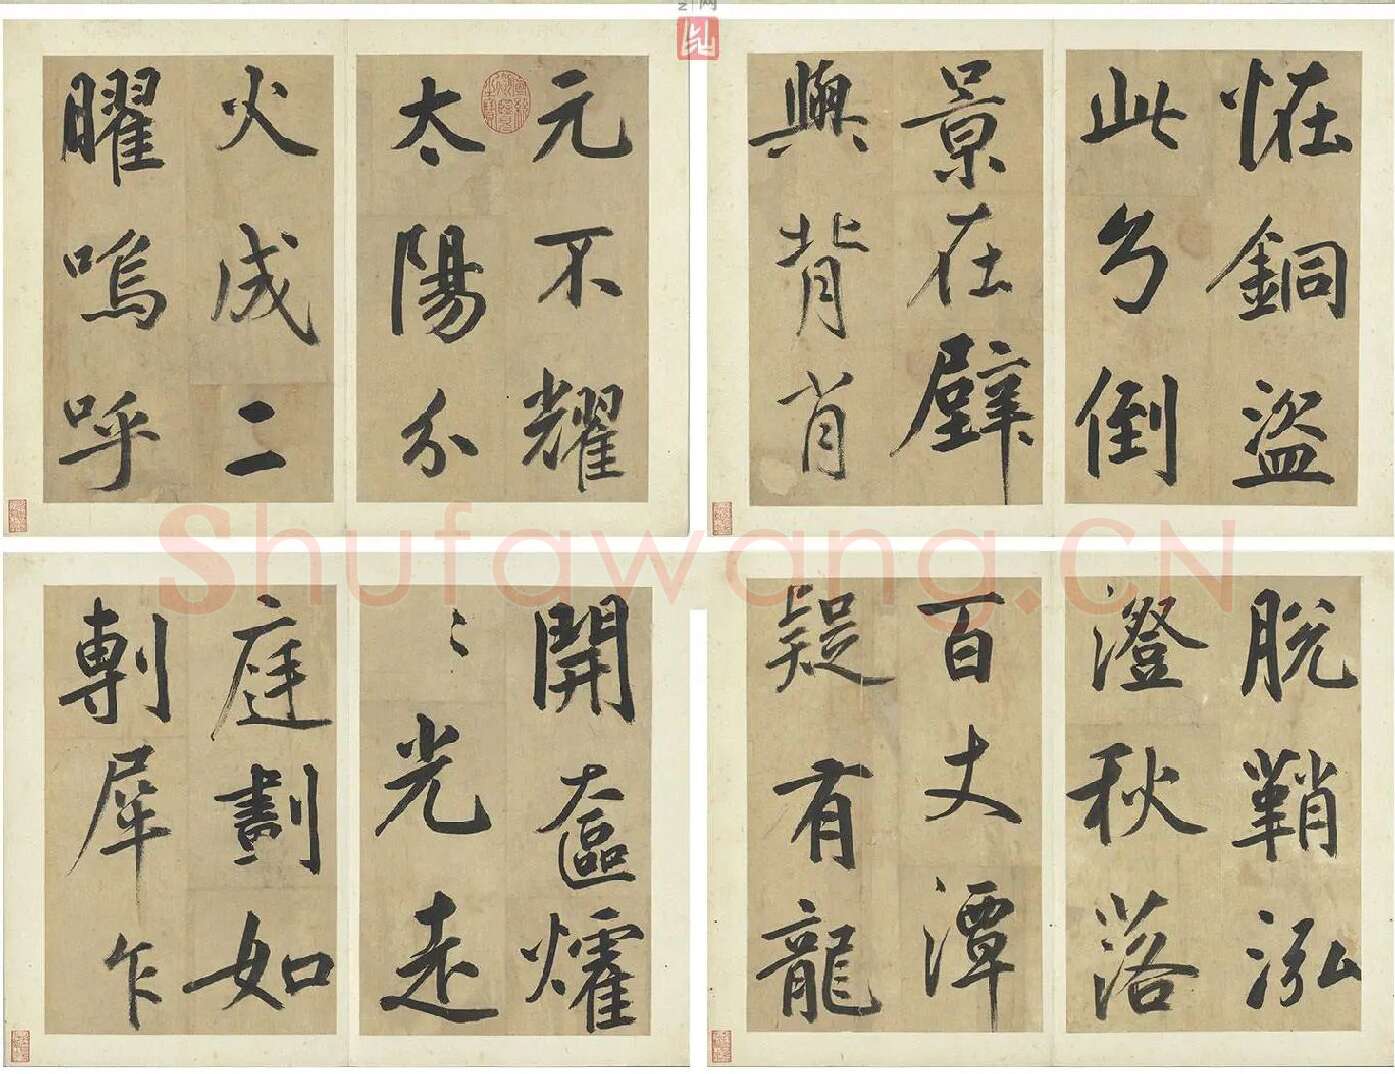 元不耀
太陽分
火成二
曜嗚呼
恠銅盜
此兮倒
景在壁
與背肖
開奩爚
〻光走
庭劃如
剸犀乍
脫鞘泓
澄秋落
百丈潭
疑有龍
Shufawang.CN